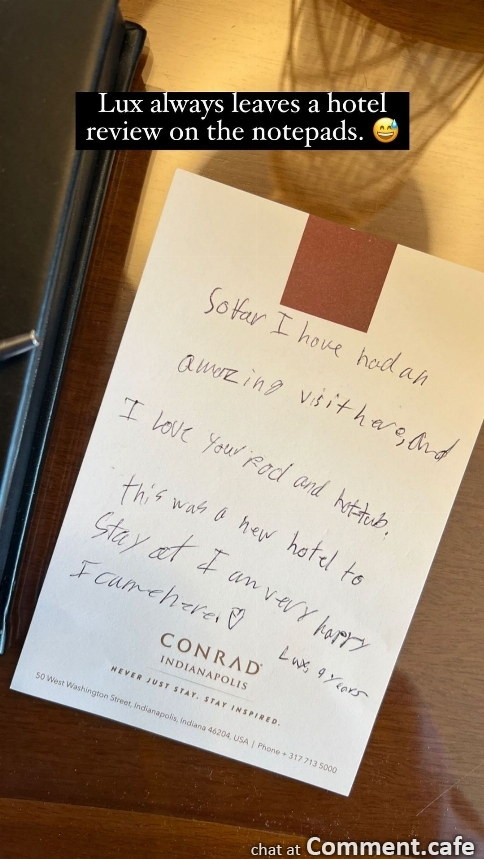 Lux always leaves a hotel
review on the notepads. 😅
Sofar I have had an
amazing visit here, and
I love your pool and hottub.
this was a new hotel to
Stay at I am very happy
I came here. ♡
Lux, 9 years
CONRAD
INDIANAPOLIS
NEVER JUST STAY. STAY INSPIRED.
50 West Washington Street, Indianapolis, Indiana 46204, USA | Phone + 317 713 5000
chat at Comment.cafe